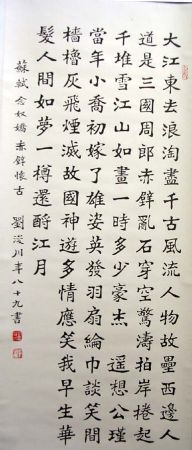 大江東去浪淘盡千古風流人物故壘西邊人
道是三國周郎赤壁亂石穿空驚濤拍岸捲起
千堆雪江山如畫一時多少豪杰 遙想公瑾
當年小喬初嫁了雄姿英發羽扇綸巾談笑間
檣櫓灰飛煙滅故國神遊多情應笑我早生華
髮人間如夢一樽還酹江月
蘇軾念奴嬌赤壁懷古 劉浚川年八十九書